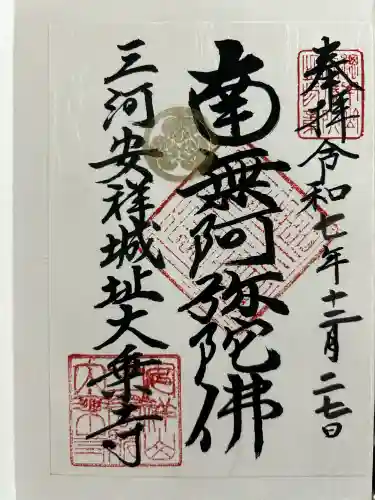 奉拝 令和七年十二月二七日
南無阿弥陀佛
三河安祥城址大乗寺